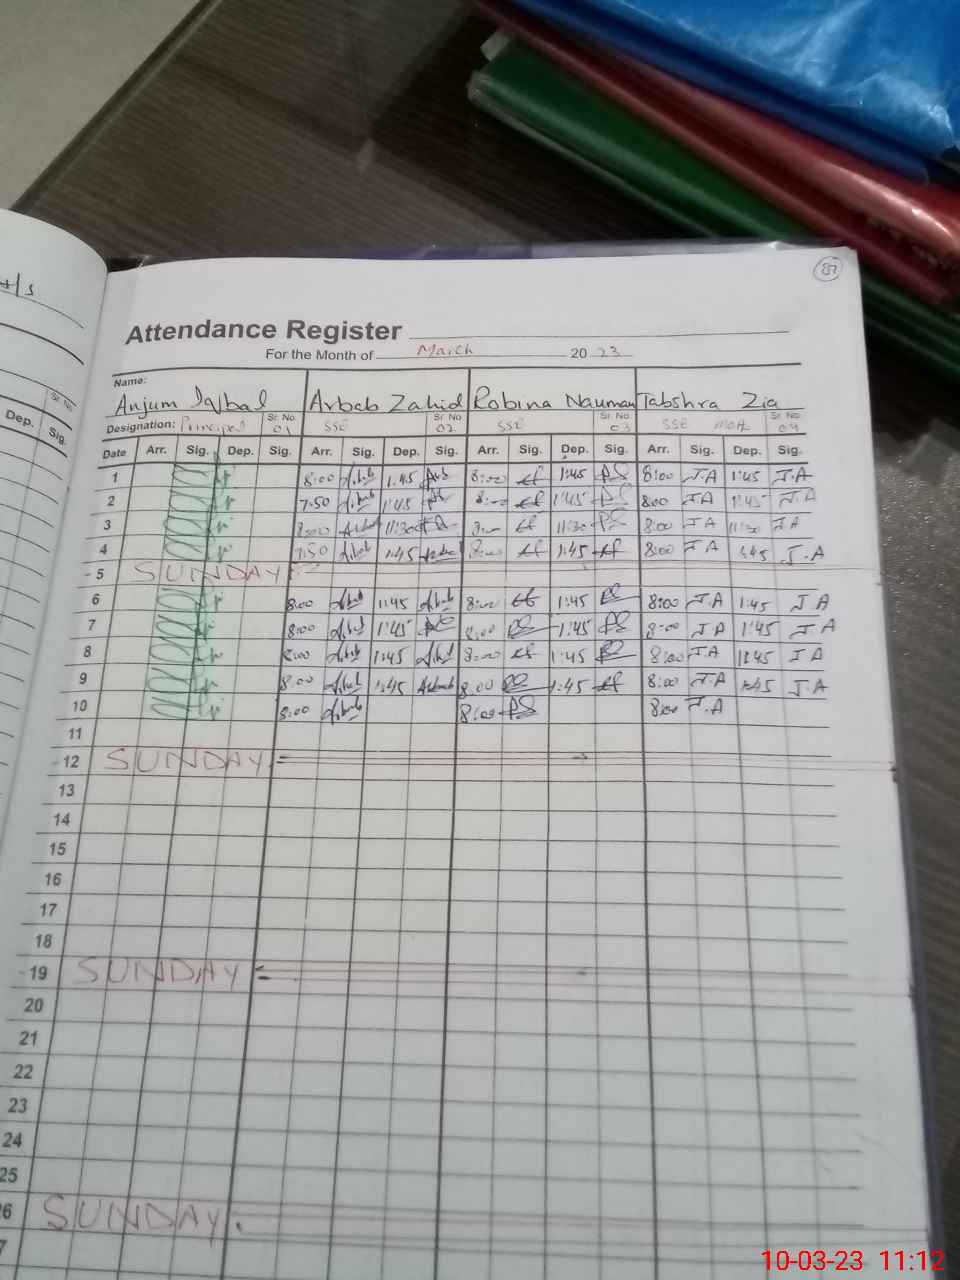 87
Attendance Register
For the Month of March 20 23
Name:
Anjum Iqbal Arbab Zahid Robina Nauman Tabshra Zia
Designation: Principal Sr. No. 01 SSE Sr. No. 02 SSE Sr. No. 03 SSE Math Sr. No. 04
Dep. Sig. Sr. No.
Date Arr. Sig. Dep. Sig. Arr. Sig. Dep. Sig. Arr. Sig. Dep. Sig. Arr. Sig. Dep. Sig.
1 8:00 1:45 8:00 1:45 8:00 J.A 1:45 J.A
2 7:50 1:45 8:00 1:45 8:00 J A 1:45 J.A
3 8:00 11:30 8:00 11:30 8:00 J A 11:30 J A
4 7:50 1:45 8:00 1:45 8:00 J A 1:45 J.A
5 SUNDAY
6 8:00 1:45 8:00 1:45 8:00 J.A 1:45 J A
7 8:00 1:45 8:00 1:45 8:00 J A 1:45 J A
8 8:00 1:45 8:00 1:45 8:00 J A 1:45 J A
9 8:00 1:45 8:00 1:45 8:00 J.A 1:45 J.A
10 8:00 8:00 8:00 J.A
11
12 SUNDAY
13
14
15
16
17
18
19 SUNDAY
20
21
22
23
24
25
26 SUNDAY
10-03-23 11:12